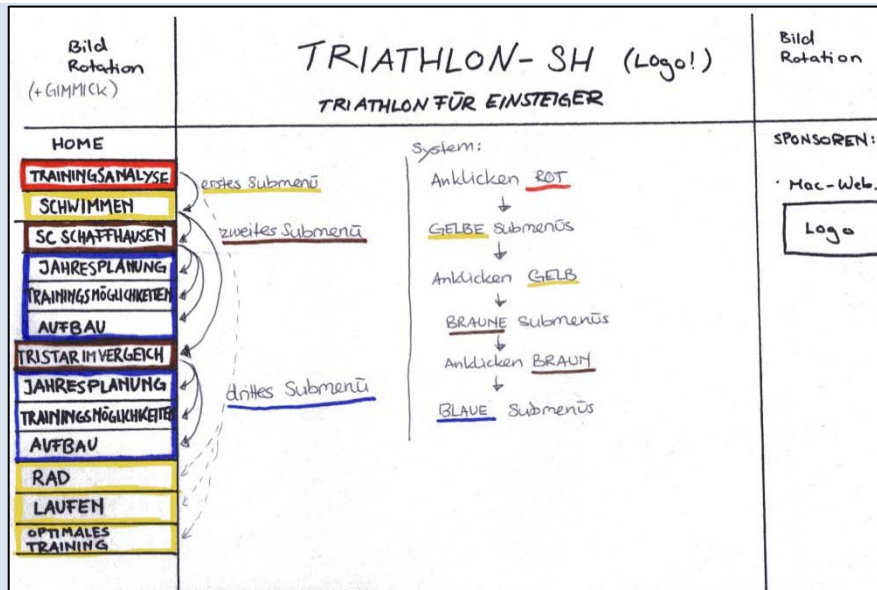 Bild
Rotation
(+GIMMICK)
TRIATHLON-SH (Logo!)
TRIATHLON FÜR EINSTEIGER
Bild
Rotation
HOME
TRAININGSANALYSE
SCHWIMMEN
SC SCHAFFHAUSEN
JAHRESPLANUNG
TRAININGSMÖGLICHKEITEN
AUFBAU
TRISTAR IM VERGEICH
JAHRESPLANUNG
TRAININGSMÖGLICHKEITEN
AUFBAU
RAD
LAUFEN
OPTIMALES
TRAINING
erstes Submenü
zweites Submenü
drittes Submenü
System:
Anklicken ROT
GELBE Submenüs
Anklicken GELB
BRAUNE Submenüs
Anklicken BRAUN
BLAUE Submenüs
SPONSOREN:
· Mac-Web.
Logo